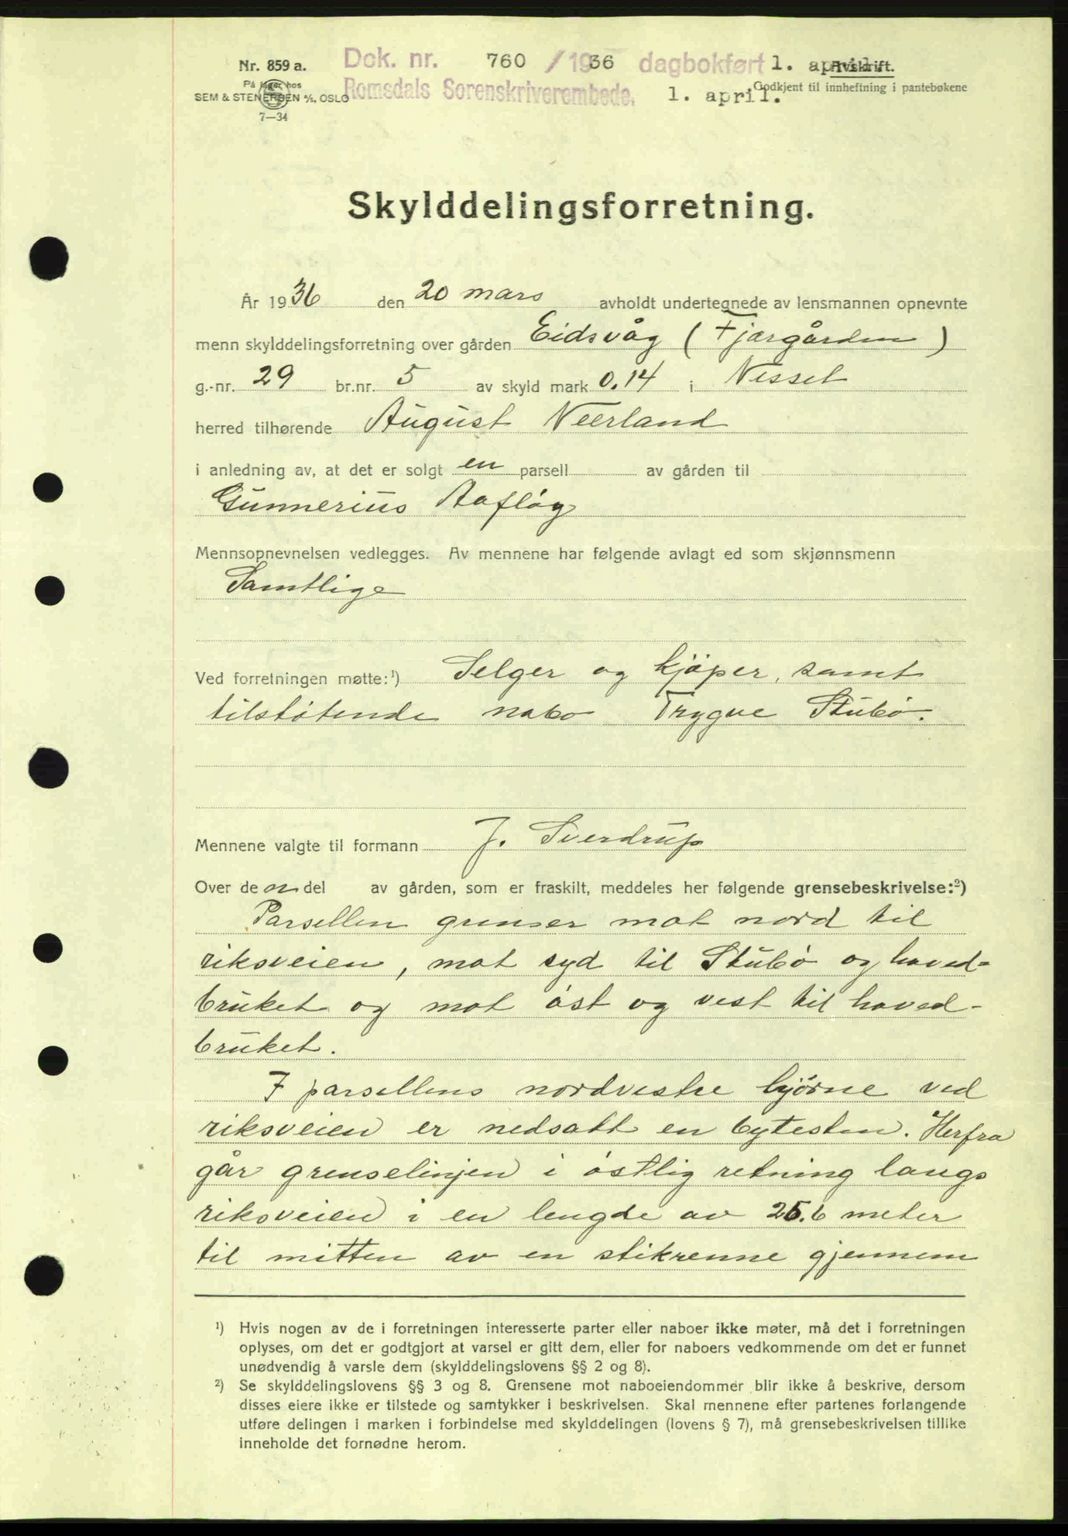 Nr. 859 a.
På lager hos
SEM & STENERSEN A/S, OSLO
7—34
Dok. nr. 760 / 1936 dagbokført 1. april.
Romsdals Sorenskriverembede, 1. april.
Avskrift.
Godkjent til innheftning i pantebøkene
Skylddelingsforretning.
År 1936 den 20 mars avholdt undertegnede av lensmannen opnevnte
menn skylddelingsforretning over gården Eidsvåg (Fjærgården)
g.-nr. 29 br.nr. 5 av skyld mark 0.14 i Nesset
herred tilhørende August Neerland
i anledning av, at det er solgt en parsell av gården til
Gunnerius Aafløg
Mennsopnevnelsen vedlegges. Av mennene har følgende avlagt ed som skjønnsmenn
Samtlige
Ved forretningen møtte:¹) Selger og kjøper, samt
tilstøtende nabo Trygve Stubø.
Mennene valgte til formann J. Sverdrup
Over den del av gården, som er fraskilt, meddeles her følgende grensebeskrivelse:²)
Parsellen grenser mot nord til
riksveien, mot syd til Stubø og hoved-
bruket og mot øst og vest til hoved-
bruket.
I parsellens nordvestre hjørne ved
riksveien er nedsatt en bytesten. Herfra
går grenselinjen i østlig retning langs
riksveien i en lengde av 25.6 meter
til mitten av en stikrenne gjennem
¹) Hvis nogen av de i forretningen interesserte parter eller naboer ikke møter, må det i forretningen
oplyses, om det er godtgjort at varsel er gitt dem, eller for naboers vedkommende om det er funnet
unødvendig å varsle dem (skylddelingslovens §§ 2 og 8).
²) Se skylddelingslovens §§ 3 og 8. Grensene mot naboeiendommer blir ikke å beskrive, dersom
disses eiere ikke er tilstede og samtykker i beskrivelsen. Skal mennene efter partenes forlangende
utføre delingen i marken i forbindelse med skylddelingen (lovens § 7), må grensebeskrivelsen tillike
inneholde det fornødne herom.